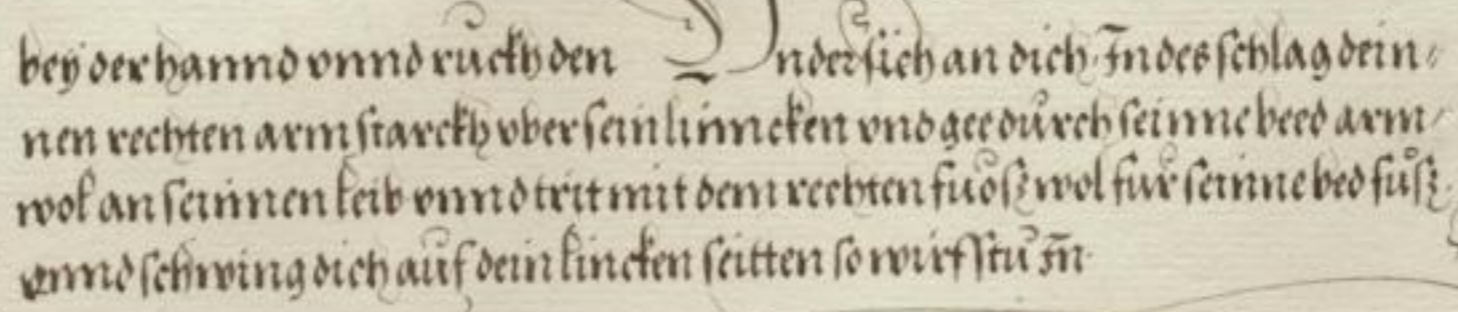 beÿ der hannd vnnd ruckh den Vndersich an dich, Indes schlag dein-
nen rechten arm starckh vber sein linncken vnd gee durch seinne beed arm
wol an seinnen leib vnnd trit mit dem rechten fuoß wol für seinne bed füß,
vnnd schwing dich auf dein lincken seitten so wirfstu In